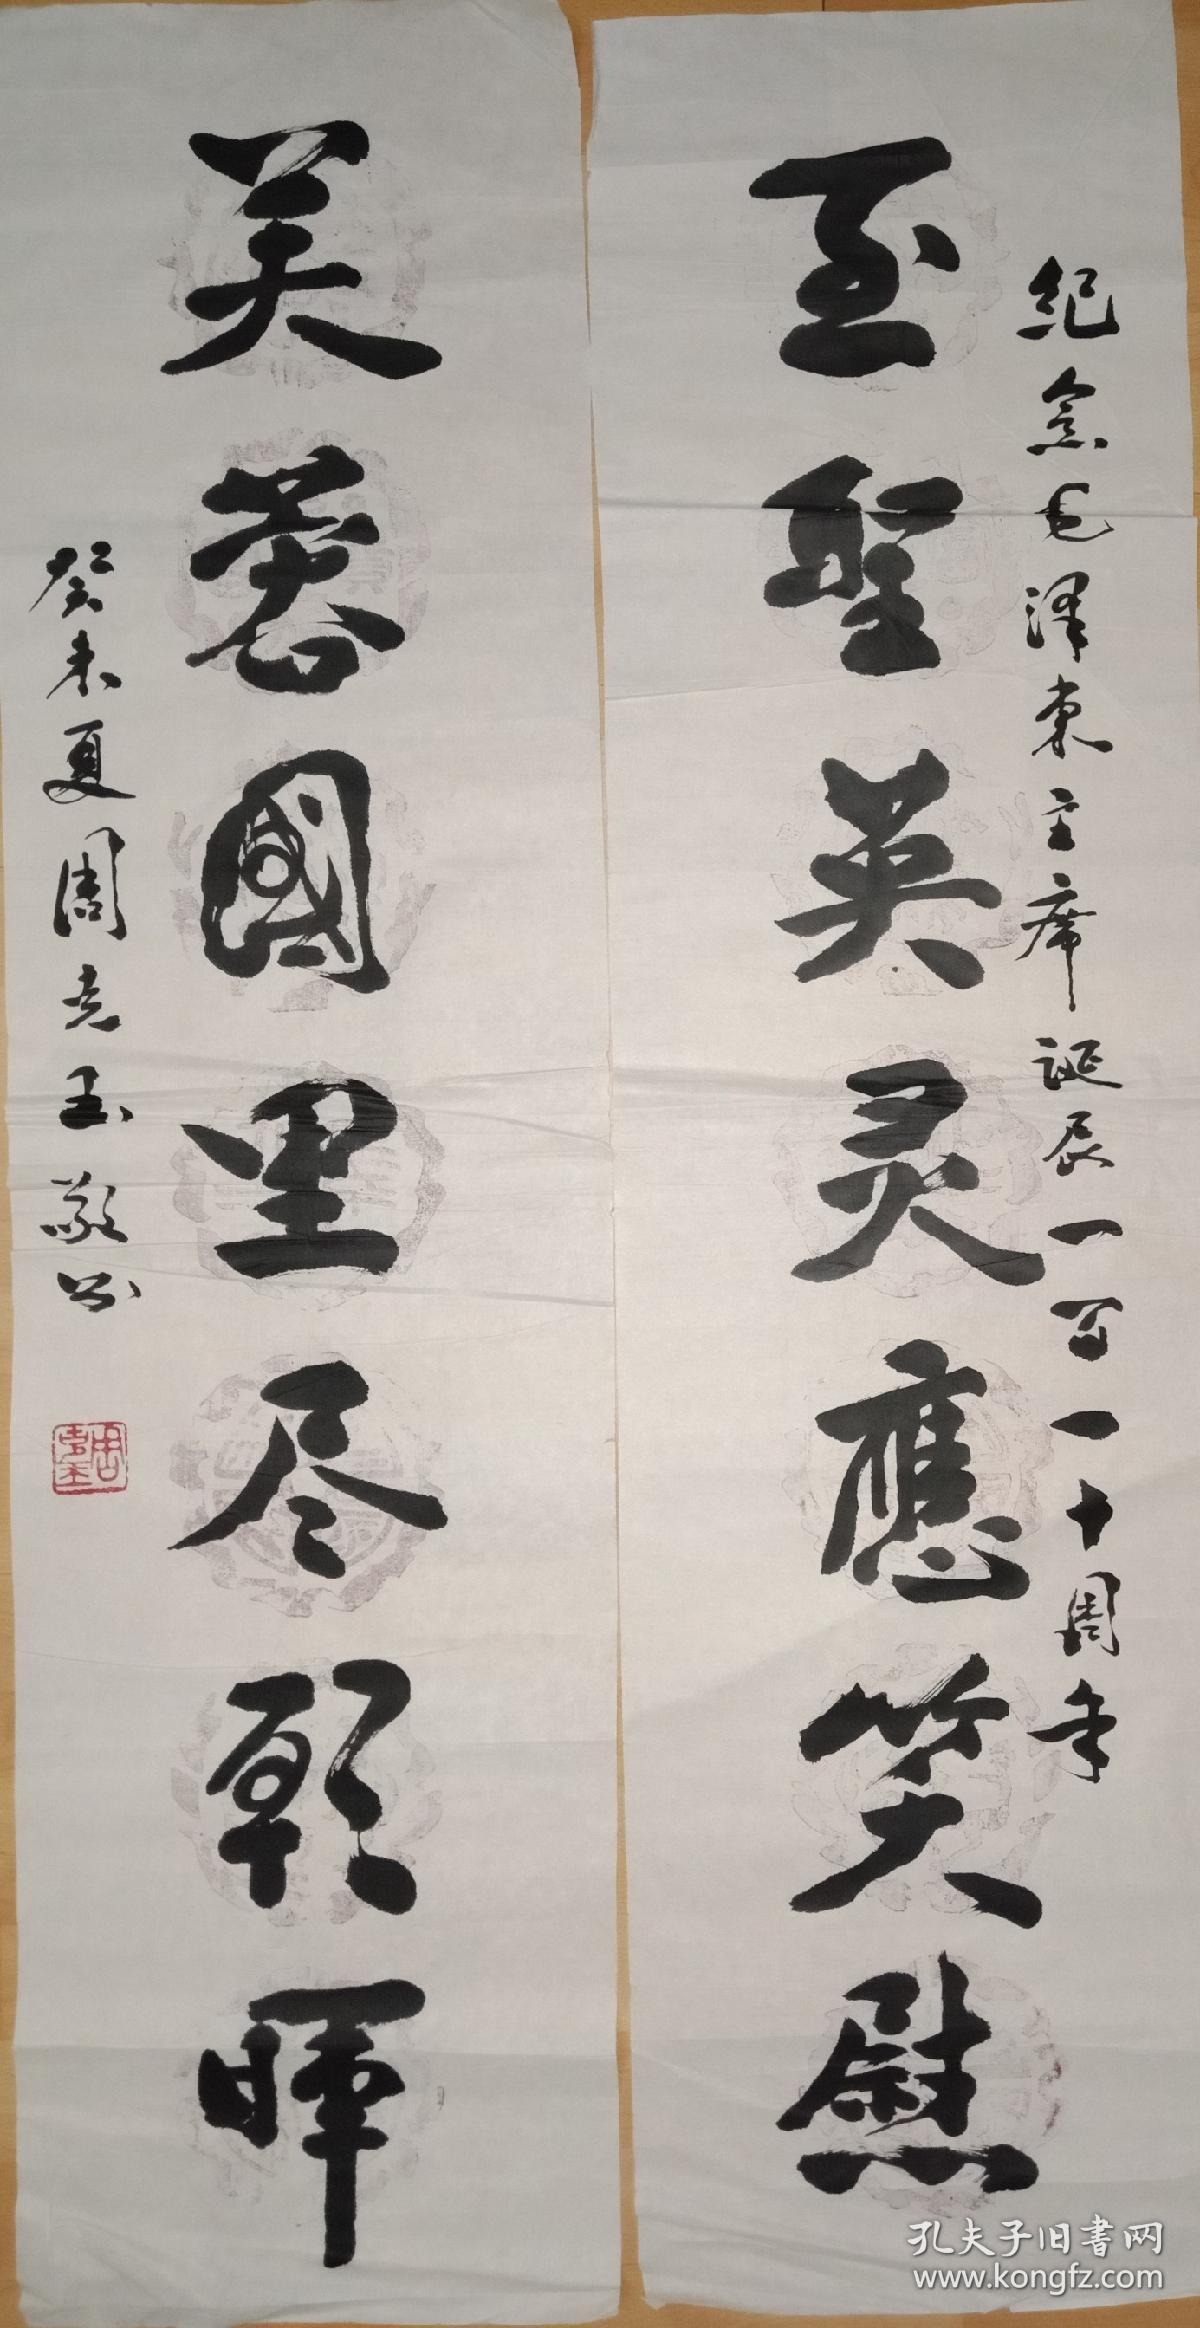 纪念毛泽東主席诞辰一百一十周年
至聖英灵應笑慰
芙蓉國里尽朝暉
癸未夏周克玉敬书
周克玉
孔夫子旧书网
www.kongfz.com